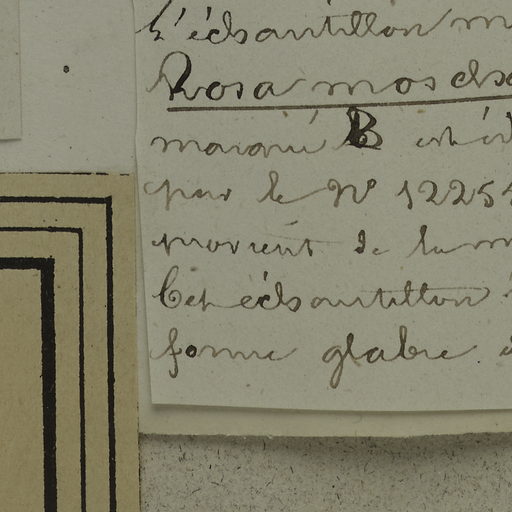 L'échantillon
Rosa mosch
marqué B est
par le N° 1225
provient de la
Cet échantillon
forme glabre